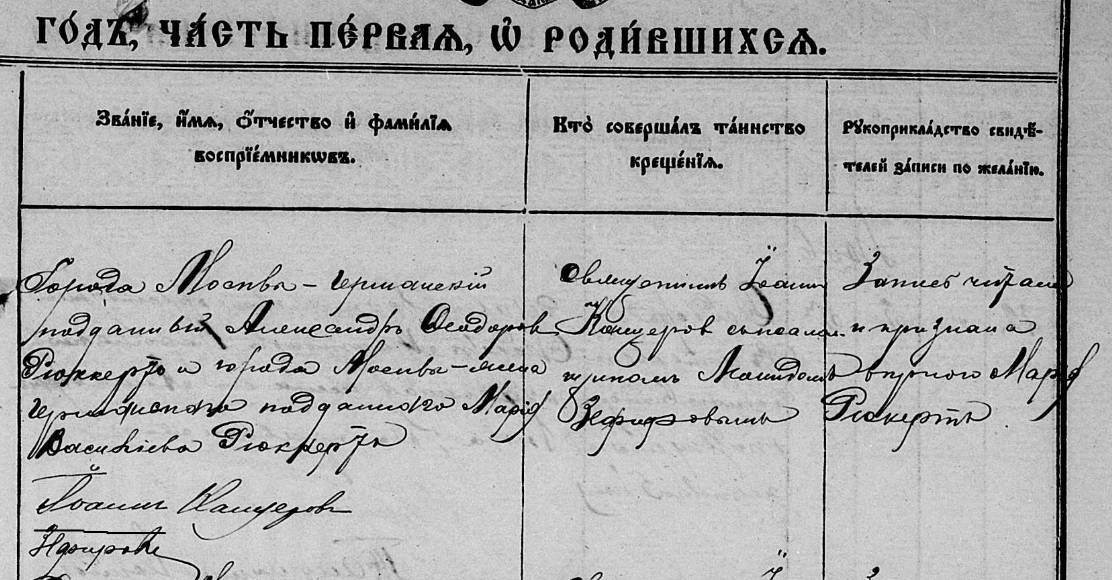 го́дъ, ча́сть пе́рваѧ, ѡ҆ роди́вшихсѧ.
Зва́нїе, и҆́мѧ, ѻ҆́тчество и҆ фами́лїѧ
воспрїе́мникѡвъ.
Кто̀ соверша́лъ та́инство
креще́нїѧ.
Рꙋкоприкла́дство свидѣ́-
телей за́писи по жела́нїю.
Города Москвы – германскій
подданный Александръ Ѳеодоров
Рюккертъ и города Москвы – жена
германскаго подданнаго Марія
Васильева Рюккертъ
Іоаннъ Канцеровъ
Священникъ Іоаннъ
Канцеров съ псалом-
щикомъ
Зефировымъ
Запись читала
и признала
верного Марія
Рюкертъ